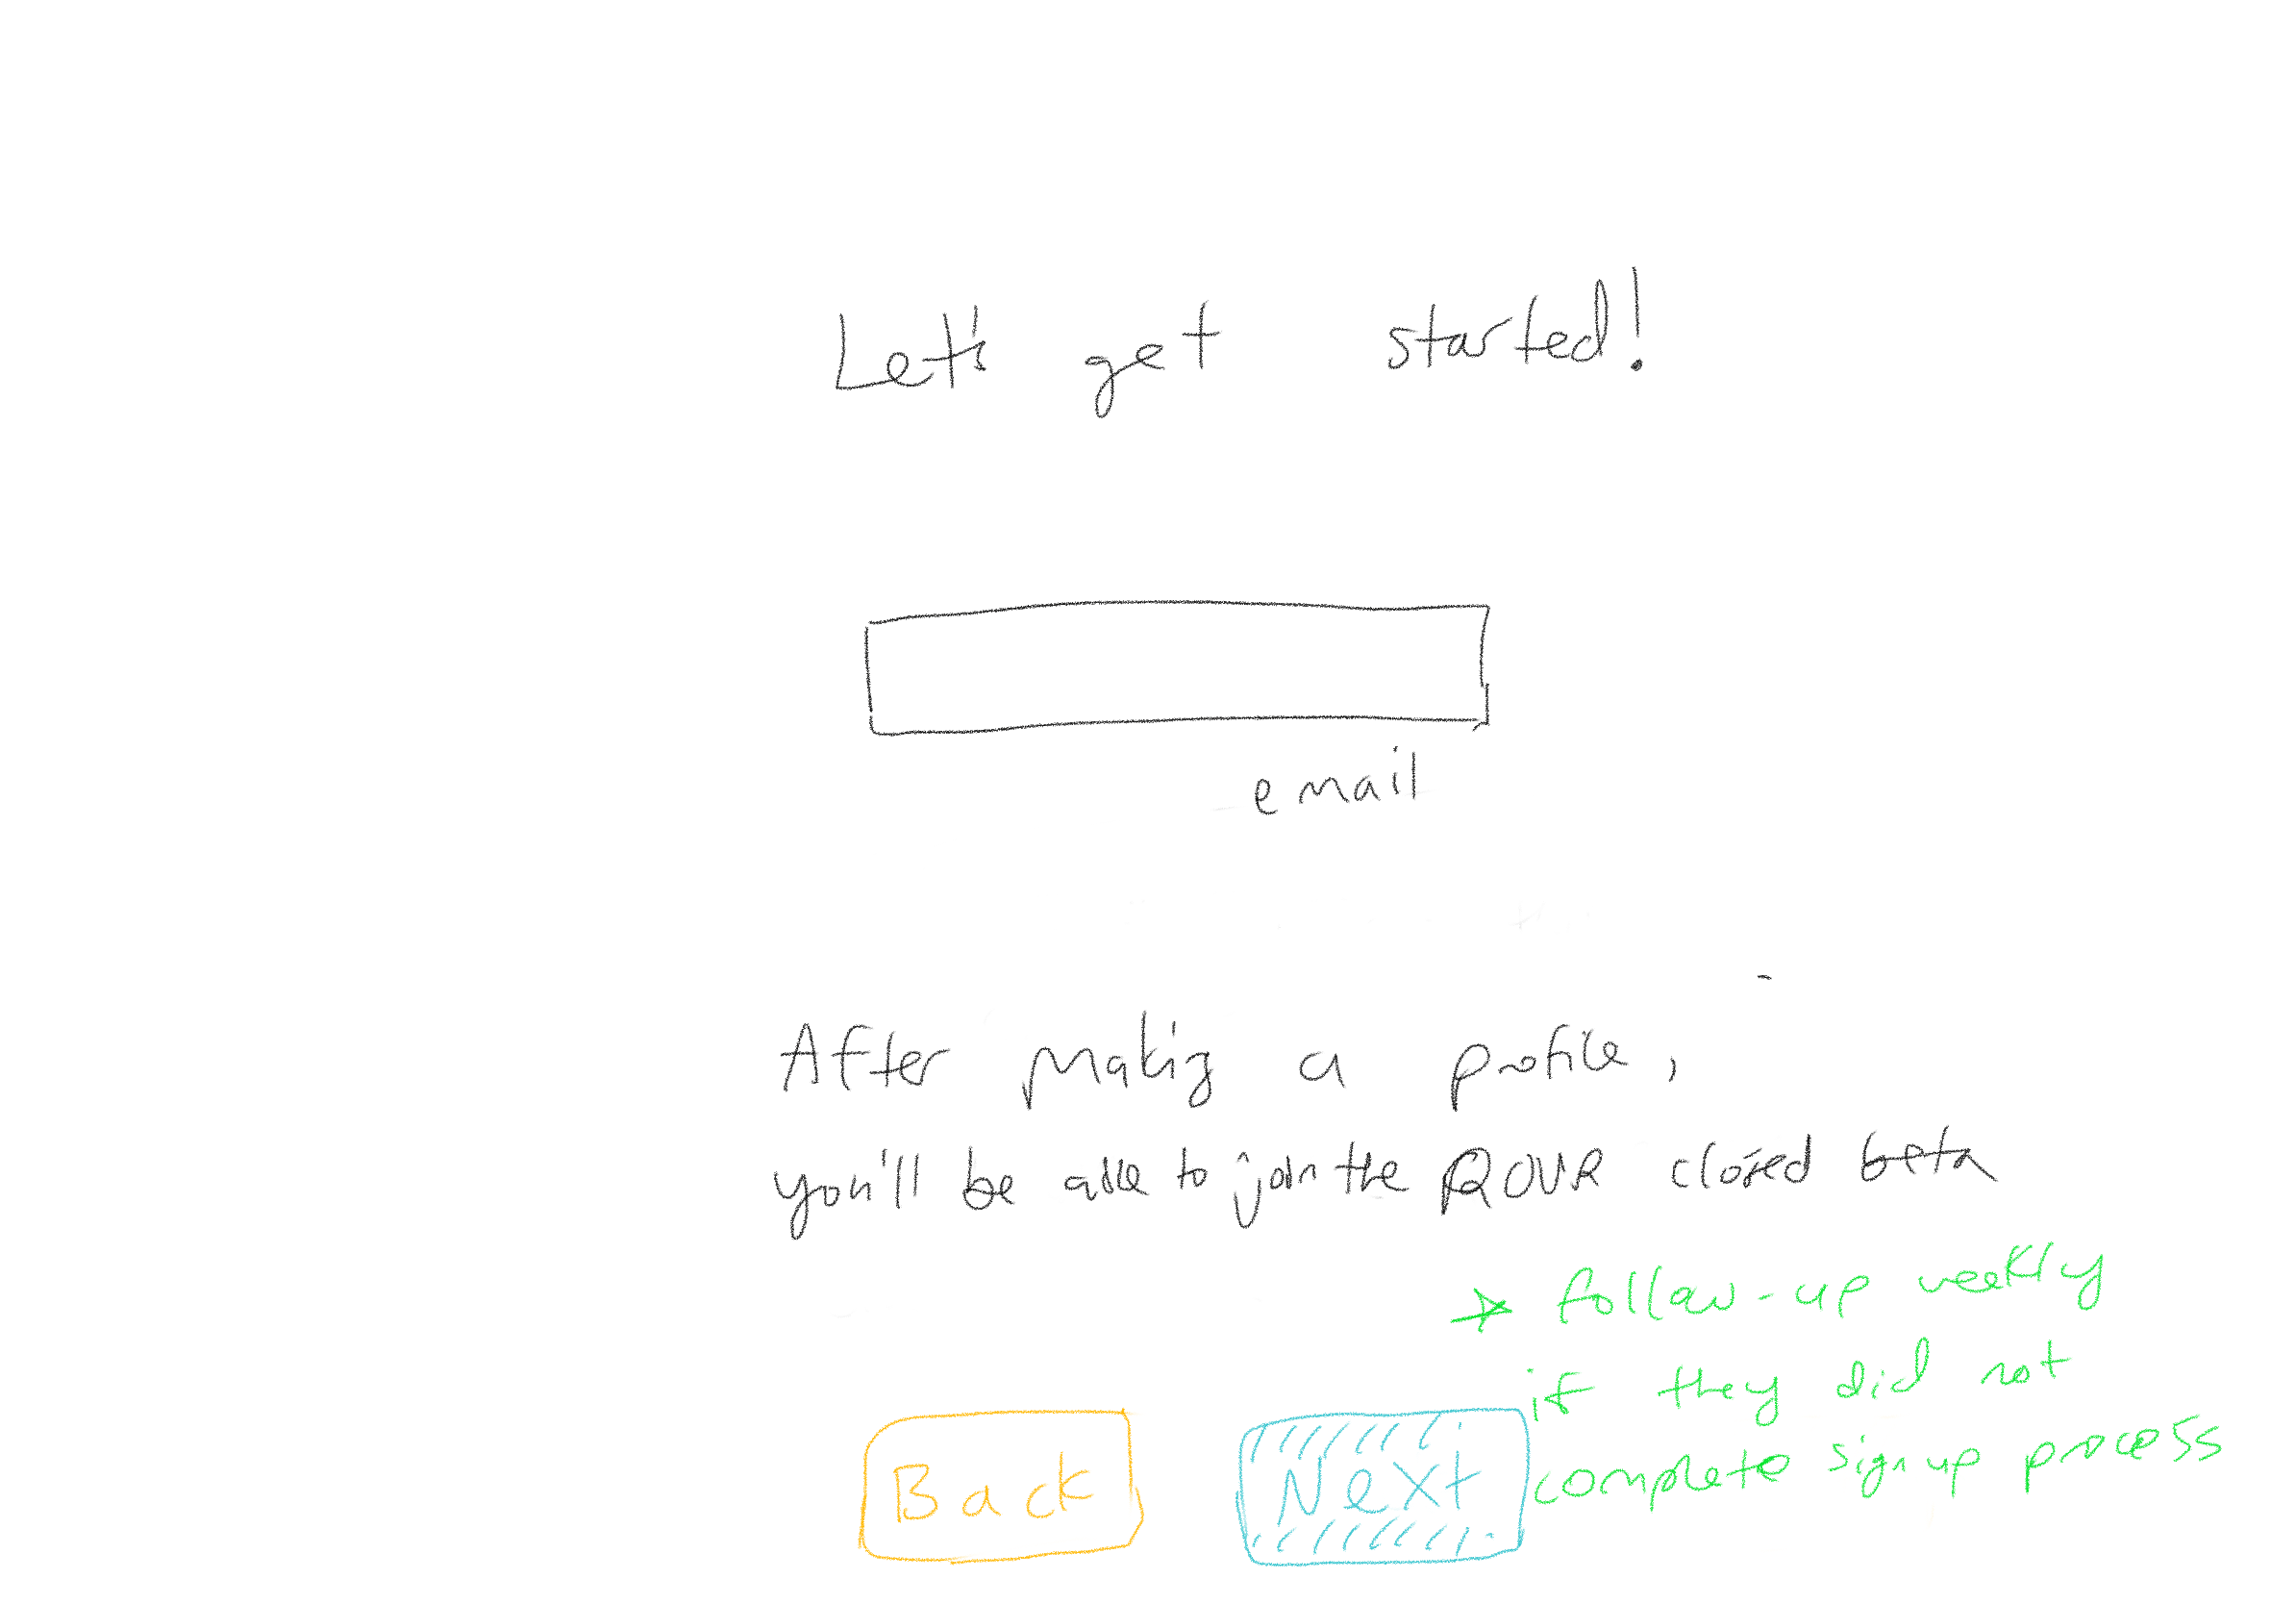 Let's get started!
email
After making a profile,
you'll be able to join the ROVR closed beta
* follow-up weekly
if they did not
complete signup process
Back
Next